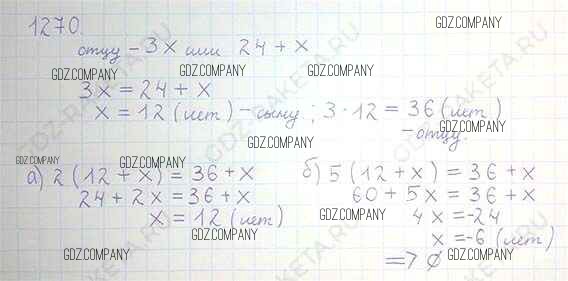 1270.
отцу - 3x или 24 + x
3x = 24 + x
x = 12 (лет) - сыну ; 3 · 12 = 36 (лет)
- отцу.
а) 2 (12 + x) = 36 + x
24 + 2x = 36 + x
x = 12 (лет)
б) 5 (12 + x) = 36 + x
60 + 5x = 36 + x
4x = -24
x = -6 (лет)
=> ∅
GDZ.COMPANY
GDZ.COMPANY
GDZ.COMPANY
GDZ.COMPANY
GDZ.COMPANY
GDZ.COMPANY
GDZ.COMPANY
GDZ.COMPANY
GDZ.COMPANY
GDZ.COMPANY
GDZ.COMPANY
GDZ.COMPANY
GDZ-RAKETA.RU
GDZ-RAKETA.RU